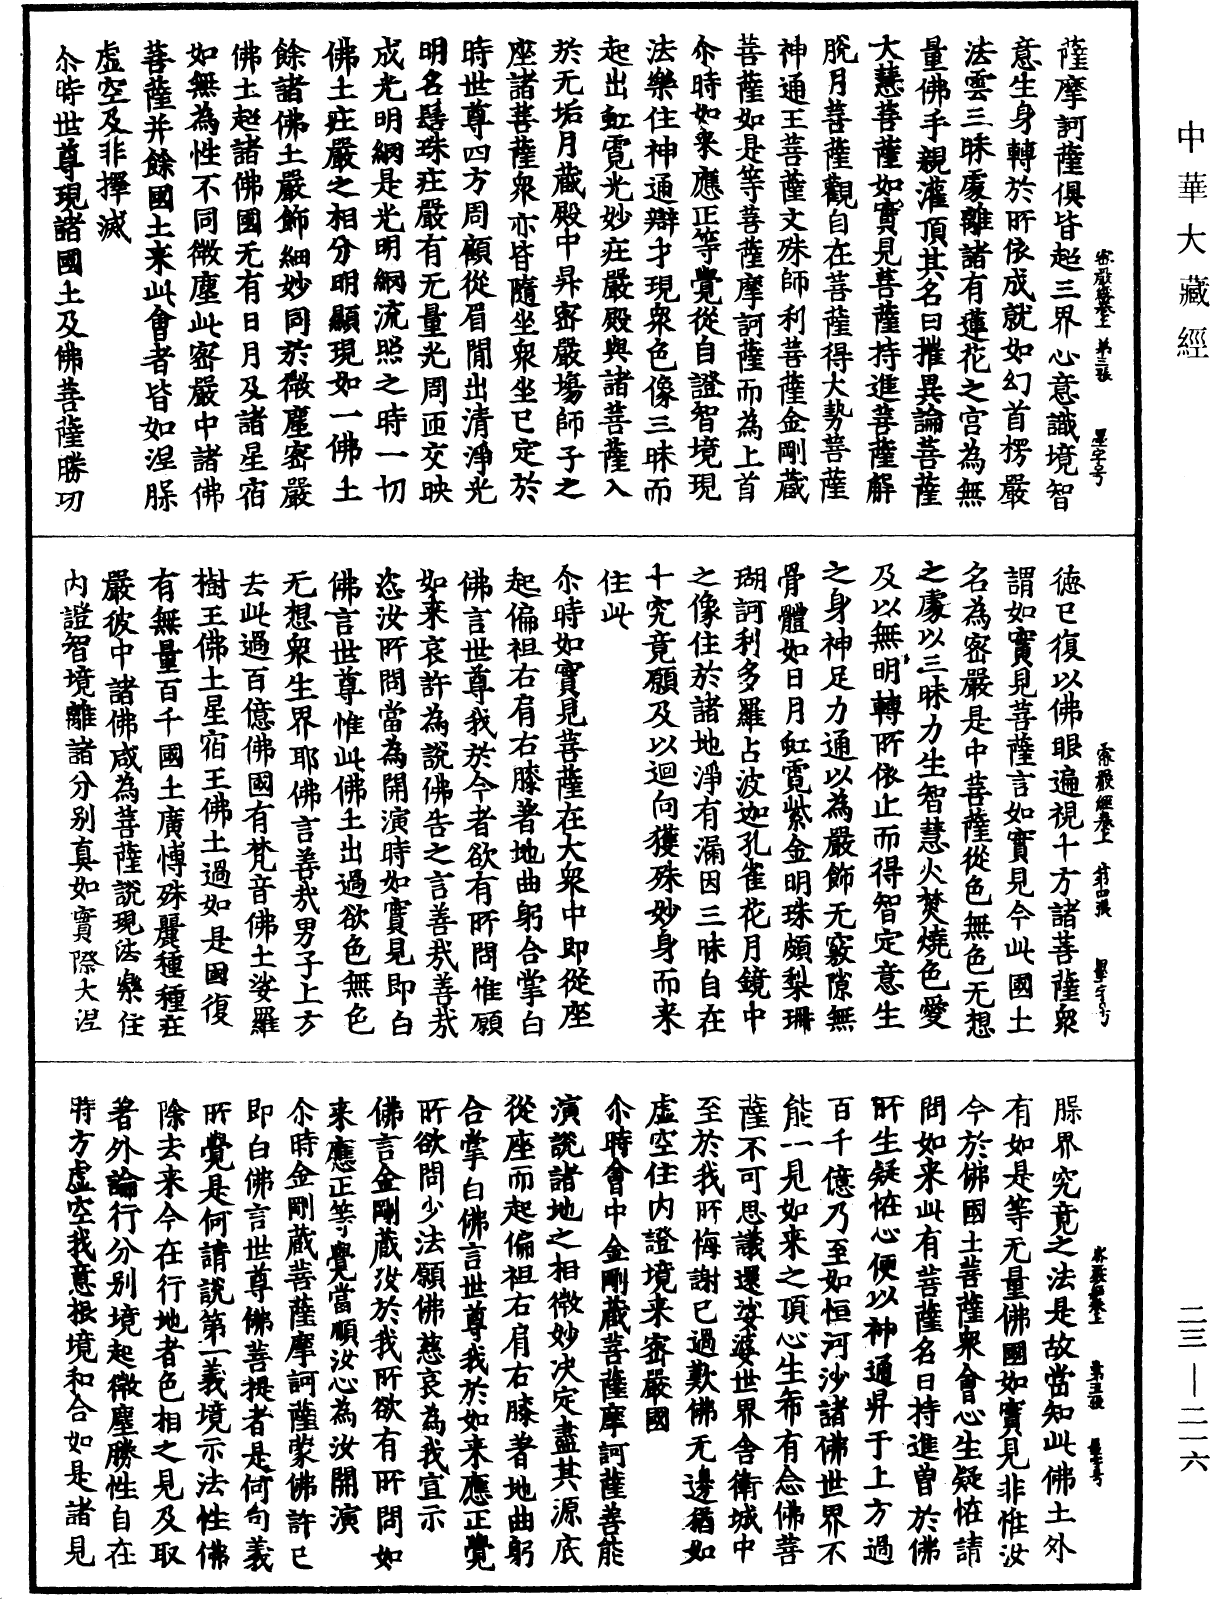 中華大藏經
薩摩訶薩俱皆超三界心意識境智
意生身轉於所依成就如幻首楞嚴
法雲三昧處離諸有蓮花之宫為無
量佛手親灌頂其名曰摧異論菩薩
大慧菩薩如實見菩薩持進菩薩解
脫月菩薩觀自在菩薩得大勢菩薩
神通王菩薩文殊師利菩薩金剛藏
菩薩如是等菩薩摩訶薩而為上首
尒時如來應正等覺從自證智境現
法樂住神通辯才現衆色像三昧而
起出虹霓光妙莊嚴殿與諸菩薩入
於无垢月藏殿中昇密嚴場師子之
座諸菩薩衆亦皆隨坐衆坐已定於
時世尊四方周顧從眉閒出清淨光
明名髻珠莊嚴有无量光周匝交映
成光明網是光明網流照之時一切
佛土莊嚴之相分明顯現如一佛土
餘諸佛土嚴飾細妙同於微塵密嚴
佛土超諸佛國无有日月及諸星宿
如無為性不同微塵此密嚴中諸佛
菩薩并餘國土来此會者皆如涅槃
虛空及非擇滅
尒時世尊現諸國土及佛菩薩勝功
密嚴經卷上 第三張 墨字号
德已復以佛眼遍視十方諸菩薩衆
謂如實見菩薩言如實見今此國土
名為密嚴是中菩薩從色無色无想
之處以三昧力生智慧火焚燒色愛
及以無明轉所依止而得智定意生
之身神足力通以為嚴飾无竅隙無
骨體如日月虹霓紫金明珠頗梨珊
瑚訶利多羅占波迦孔雀花月鏡中
之像住於諸地淨有漏因三昧自在
十究竟願及以迴向獲殊妙身而来
住此
尒時如實見菩薩在大衆中即從座
起偏袒右肩右膝著地曲躬合掌白
佛言世尊我於今者欲有所問惟願
如来哀許為說佛告之言善㢤善㢤
恣汝所問當為開演時如實見即白
佛言世尊惟此佛土出過欲色無色
无想衆生界耶佛言善㢤男子上方
去此過百億佛國有梵音佛土娑羅
樹王佛土星宿王佛土過如是國復
有無量百千國土廣博殊麗種種莊
嚴彼中諸佛咸為菩薩說現法樂住
内證智境離諸分别真如實際大涅
密嚴經卷上 第四張 墨字号
槃界究竟之法是故當知此佛土外
有如是等无量佛國如實見非惟汝
今於佛國土菩薩衆會心生疑恠請
問如来此有菩薩名曰持進曽於佛
所生疑恠心便以神通昇于上方過
百千億乃至如恒河沙諸佛世界不
能一見如来之頂心生希有念佛菩
薩不可思議還娑婆世界舍衛城中
至於我所悔謝已過歎佛无邊猶如
虛空住内證境来密嚴國
尒時會中金剛藏菩薩摩訶薩善能
演說諸地之相微妙決定盡其源底
從座而起偏袒右肩右膝著地曲躬
合掌白佛言世尊我於如来應正覺
所欲問少法願佛慈哀為我宣示
佛言金剛藏汝於我所欲有所問如
来應正等覺當順汝心為汝開演
尒時金剛藏菩薩摩訶薩蒙佛許已
即白佛言世尊佛菩提者是何句義
所覺是何請說第一義境示法性佛
除去来今在行地者色相之見及取
著外論行分别境起微塵勝性自在
時方虛空我意根境和合如是諸見
密嚴經卷上 第五張 墨字号
二三—二一六